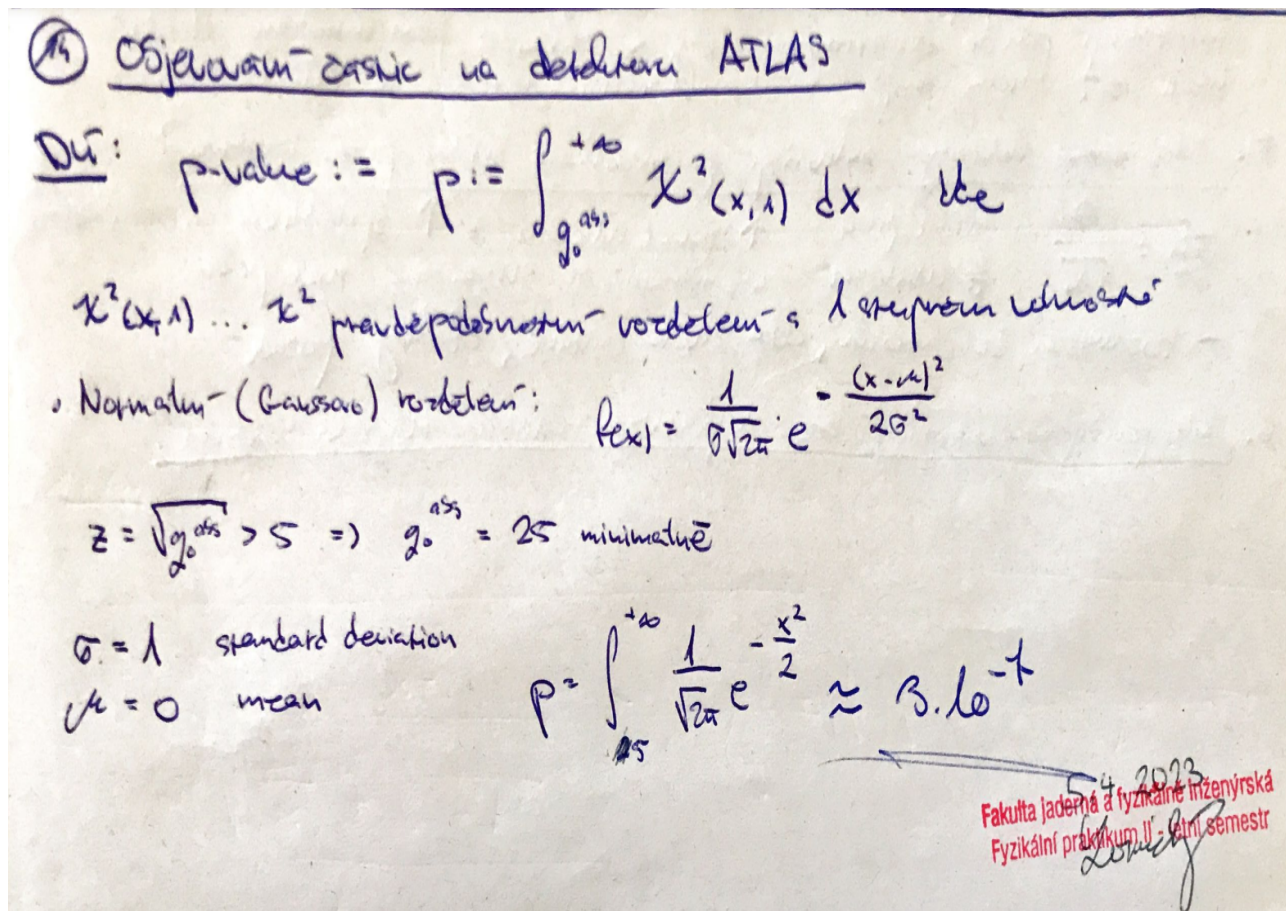 14 Objevování částic na detektoru ATLAS
DÚ: p-value := p := ∫_{q₀^{obs}}^{+∞} χ²(x,1) dx kde
χ²(x,1) ... χ² pravděpodobnostní rozdělení s 1 stupněm volnosti
• Normální (Gaussovo) rozdělení: f(x) = 1/(σ√2π) e^{-(x-μ)²/2σ²}
z = √q₀^{obs} > 5 => q₀^{obs} = 25 minimálně
σ = 1 standard deviation
μ = 0 mean
p = ∫_{5}^{+∞} 1/√2π e^{-x²/2} ≈ 3.10^{-7}
5.4.2023
Fakulta jaderná a fyzikálně inženýrská
Fyzikální praktikum II - letní semestr